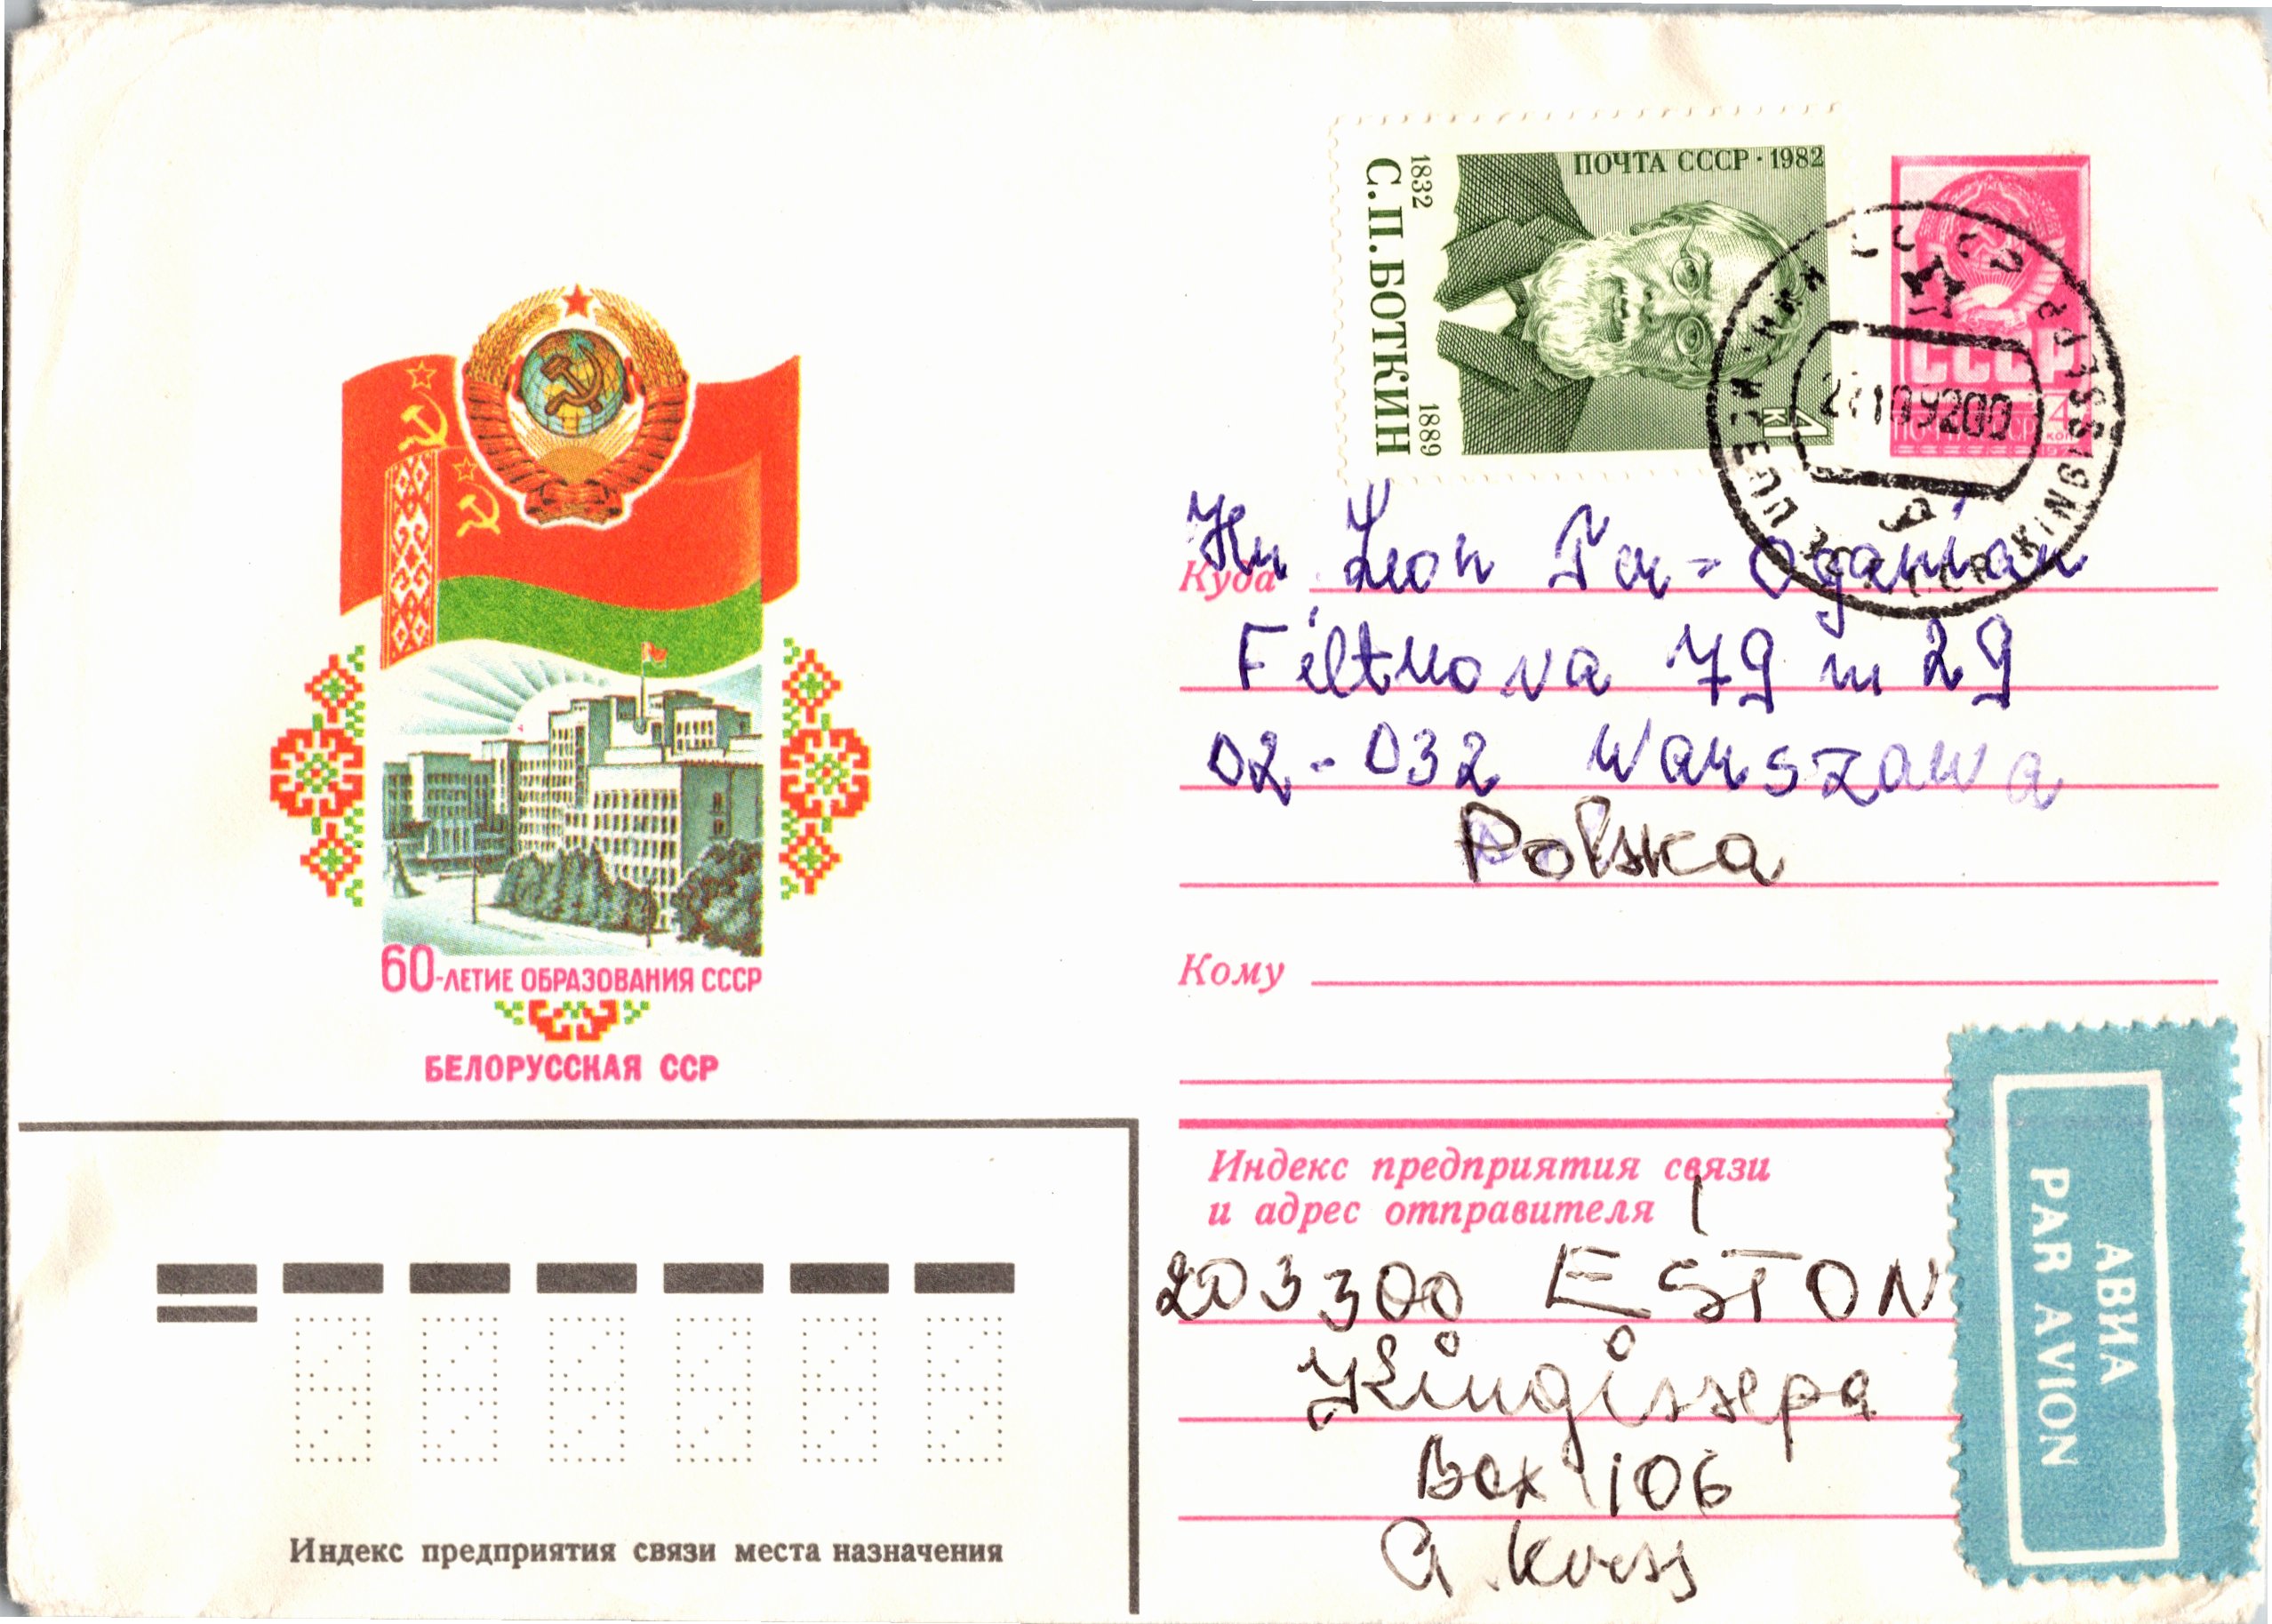 ПОЧТА СССР · 1982
1832
С.П.БОТКИН
1889
4
к
СССР
ПОЧТА СССР
4
коп
KINGISSEPA
Куда
Hr Leon Ter-Oganian
Filtrova 79 m 29
02-032 Warszawa
Polska
60-ЛЕТИЕ ОБРАЗОВАНИЯ СССР
БЕЛОРУССКАЯ ССР
Кому
Индекс предприятия связи
и адрес отправителя
203300 ESTON
Kingissepa
Box 106
A. Korss
АВИА
PAR AVION
Индекс предприятия связи места назначения